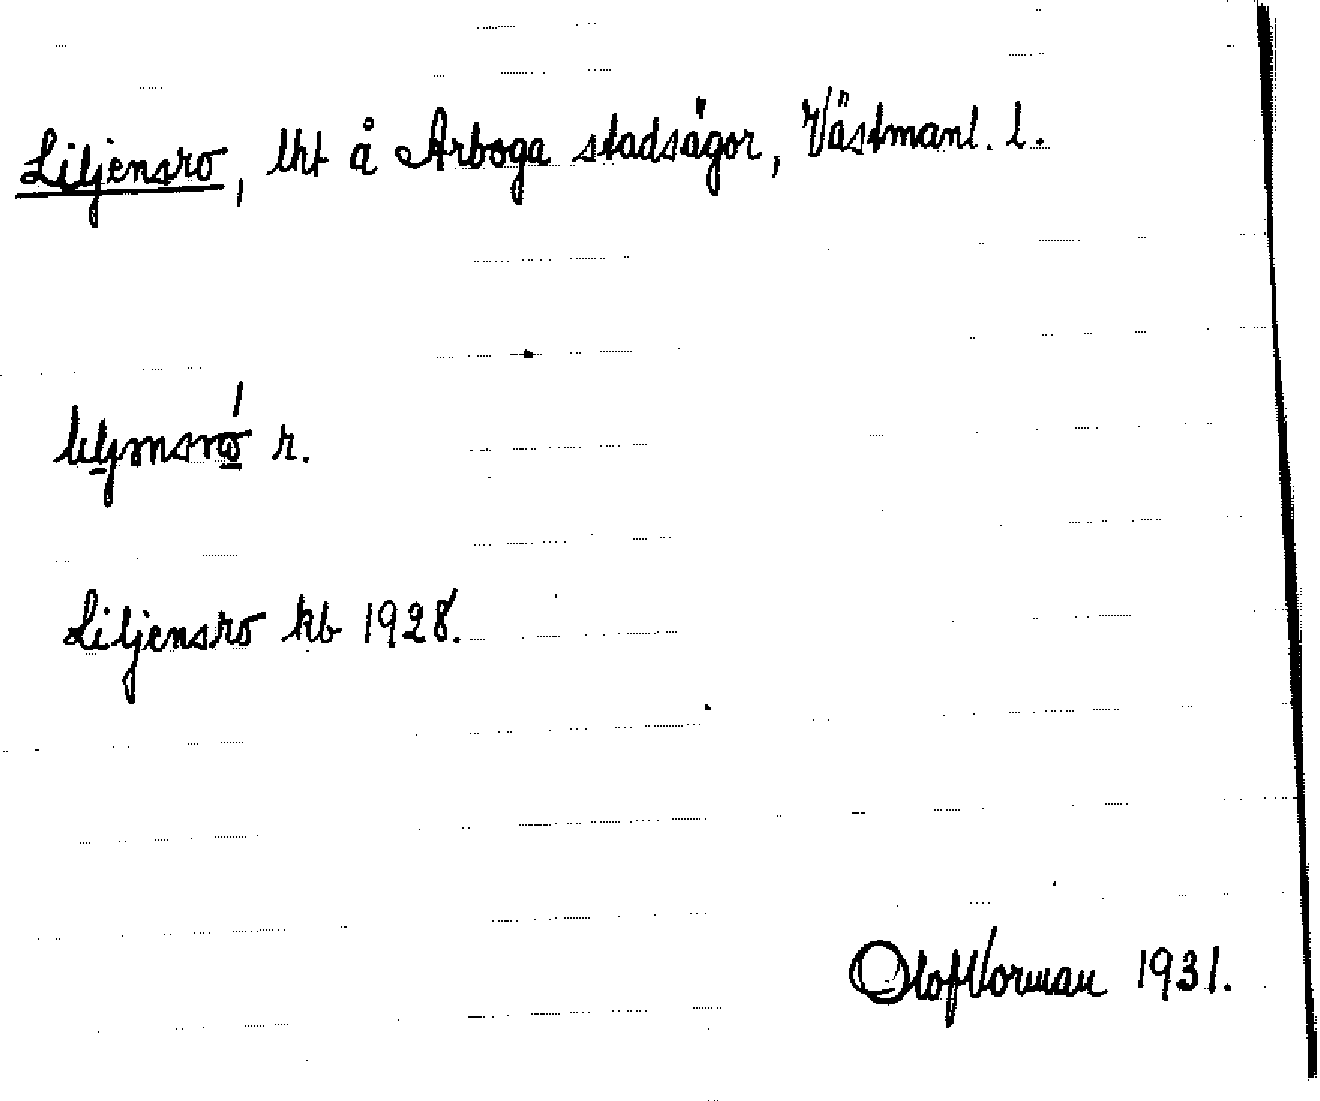 Liljensro, lht å Arboga stadsägor, Västmanl. l.
r.
Liljensro kb 1928.
Olof Vorman 1931.